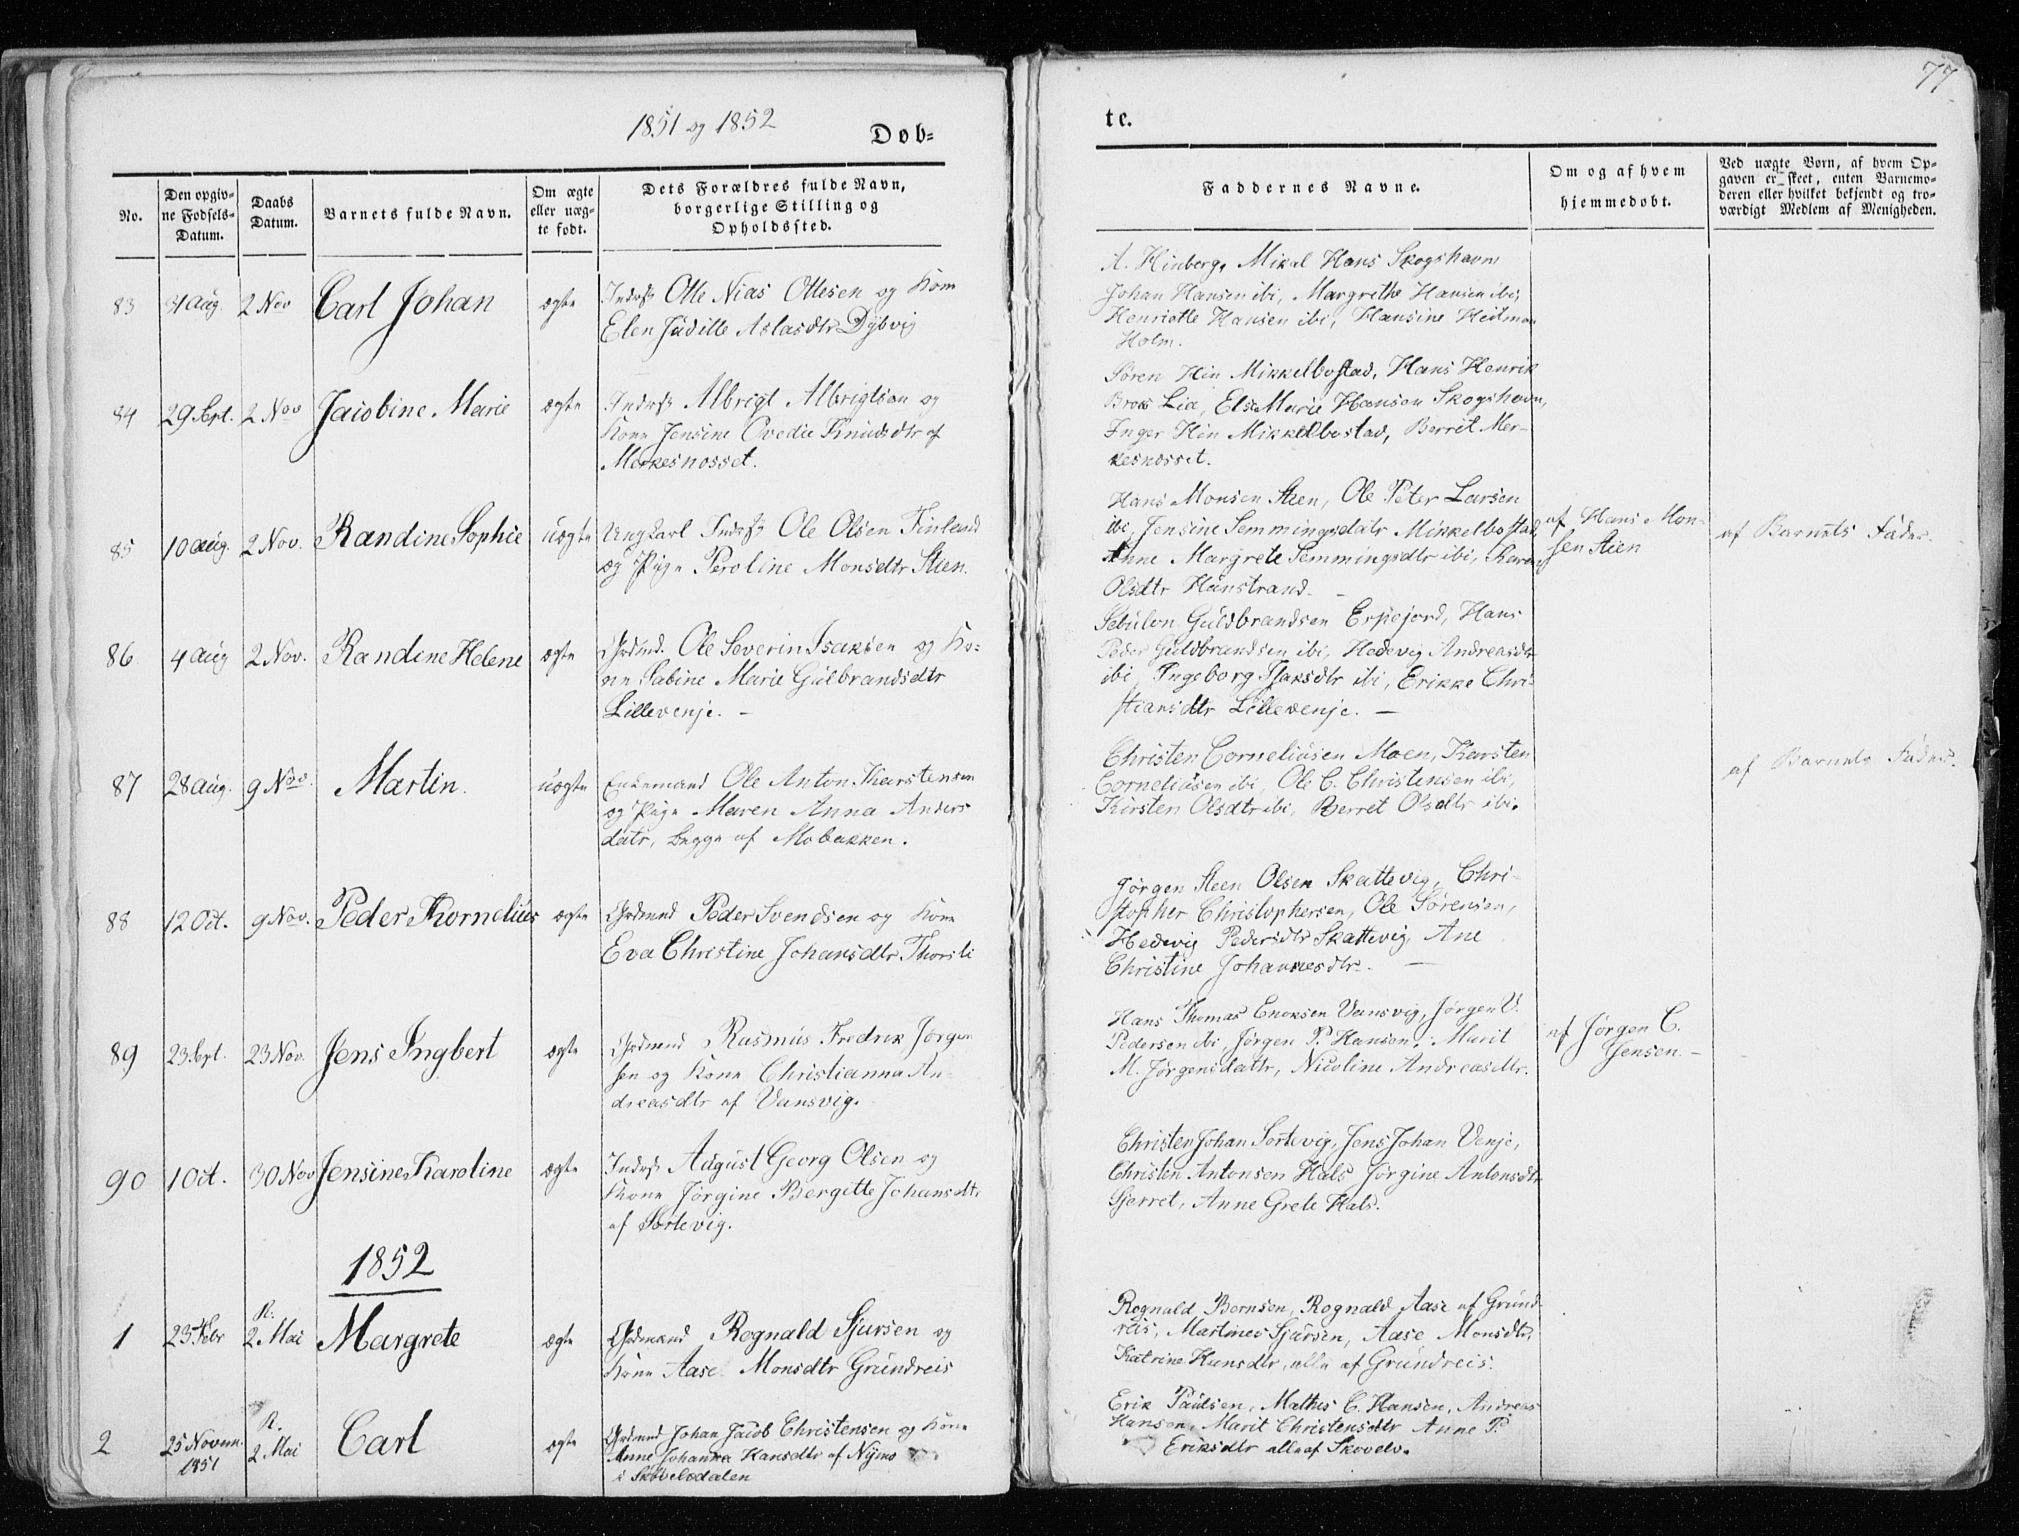 1851 og 1852
Døb-
No.
Den opgiv-
ne Fødsels-
Datum.
Daabs
Datum.
Barnets fulde Navn.
Om ægte
eller uæg-
te født.
Dets Forældres fulde Navn,
borgerlige Stilling og
Opholdssted.
83
4 Aug.
2 Nov
Carl Johan
ægte
Inderst Olle Nias Ollesen og Kone
Elen Judille Aslasdtr Dybvig
84
29 Sept.
2 Nov
Jacobine Marie
ægte
Inderst Albrigt Albrigtson og
Kone Jensine Ovedie Knudsdtr af
Merkesnosset.
85
10 Aug.
2 Nov.
Randine Sophie
uægte
Ungkarl Inderst Ole Olsen Finland
og Pige Peroline Monsdtr Stien.
86
4 Aug
2 Nov.
Randine Helene
ægte
Grdmd. Ole Severin Isaksen og Ko-
ne Sabine Marie Gulbrandsdtr
Lillevenje. –
87
28 Aug.
9 Nov.
Martin.
uægte
Enkemand Ole Anton Tharstensen
og Pige Maren Anna Anders
datr, begge af Mobakken.
88
12 Oct.
9 Nov.
Peder Kornelius
ægte
Grdmnd Peder Svendsen og Kone
Eva Christine Johansdtr Thorsli
89
23 Sept.
23 Nov.
Jens Ingbert
ægte
Grdmand Rasmus Fredrik Jørgen
sen og Kone Christianna An-
dreasdtr af Vansvig.
90
1 Oct.
30 Nov
Jensine Karoline
ægte
Inderst August Georg Olsen og
Kone Jørgine Bergitte Johansdtr
af Sørtevig.
1852
1
23 Febr
R.
2 Mai
Margrete
ægte
Grdmand Rognald Sjursen og
Kone Aase Monsdtr Grundreis
2
25 Novem.
1851
R.
2 Mai
Carl
ægte
Grdmd Johan Jacob Christensen og Kone
Anne Johanna Hansdtr af Nymo
i Skøvelsdalen
77
te.
Faddernes Navne.
Om og af hvem
hjemmedøbt.
Ved uægte Børn, af hvem Op-
gaven er skeet, enten Barnemo-
deren eller hvilket bekjendt og tro-
værdigt Medlem af Menigheden.
A. Hinberg, Mikal Hans Skogshavn
Johan Hansen ibi, Margrethe Hansen ibi,
Henriette Hansen ibi, Hansine Heilman
Holm.
Søren Hin Mikkelbostad, Hans Henrik
Brox Lia, Else Marie Hansen Skogshavn,
Inger Hin Mikkelbostad, Berret Mer-
kesnosset.
Hans Monsen Stien, Ole Peter Larsen
ibi, Jensine Semmingsdatr Mikkelbostad,
Anne Margrete Semmingsdtr ibi, Karen
Olsdtr Hunstrand. –
af Hans Mon-
sen Stien
af Barnets Fader.
Sebulon Guldbrandsen Erpejord, Hans
Peder Guldbrandsen ibi, Hedevig Andreasdtr
ibi, Ingeborg Isaksdtr ibi, Erikke Chri-
stiansdtr Lillevenje. –
Christen Corneliusen Moen, Karsten
Corneliusen ibi, Ole C. Christensen ibi,
Kirsten Olsdtr ibi, Berret Olsdtr ibi.
af Barnets Fader.
Jørgen Steen Olsen Skattevig, Chri-
stopher Christophersen, Ole Sørensen,
Hedevig Pedersdtr Skattevig, Ane
Christine Johannesdtr. –
Hans Thomas Enoksen Vansvig, Jørgen U.
Pedersen ibi, Jørgen P. Hansen, Marit
M. Jørgensdattr, Nicoline Andreasdtr.
af Jørgen C.
Jensen. –
Christen Johan Sortevig, Jens Johan Venje,
Christen Antonsen Hals Jørgine Antonsdtr
Sjerret, Anne Grete Hals.
Rognald Bernsen, Rognald Aase af Grund-
reis, Martines Sjursen, Aase Monsdtr,
Katrine Hansdtr, alle af Grundreis.
Erik Paulsen, Mathis C. Hansen, Andreas
Hansen, Marit Christensdtr Anne P.
Eriksdtr alle af Skovelv.